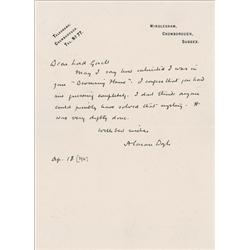 TELEGRAMS,
CROWBOROUGH.
TEL. No 77.
WINDLESHAM,
CROWBOROUGH,
SUSSEX.
Dear Lord Gorell
May I say how interested I was in
your "Devouring Fire". I confess that you had
me guessing completely. I don't think anyone
could possibly have solved that mystery. It
was very deftly done.
With best wishes
A Conan Doyle
Ap. 18